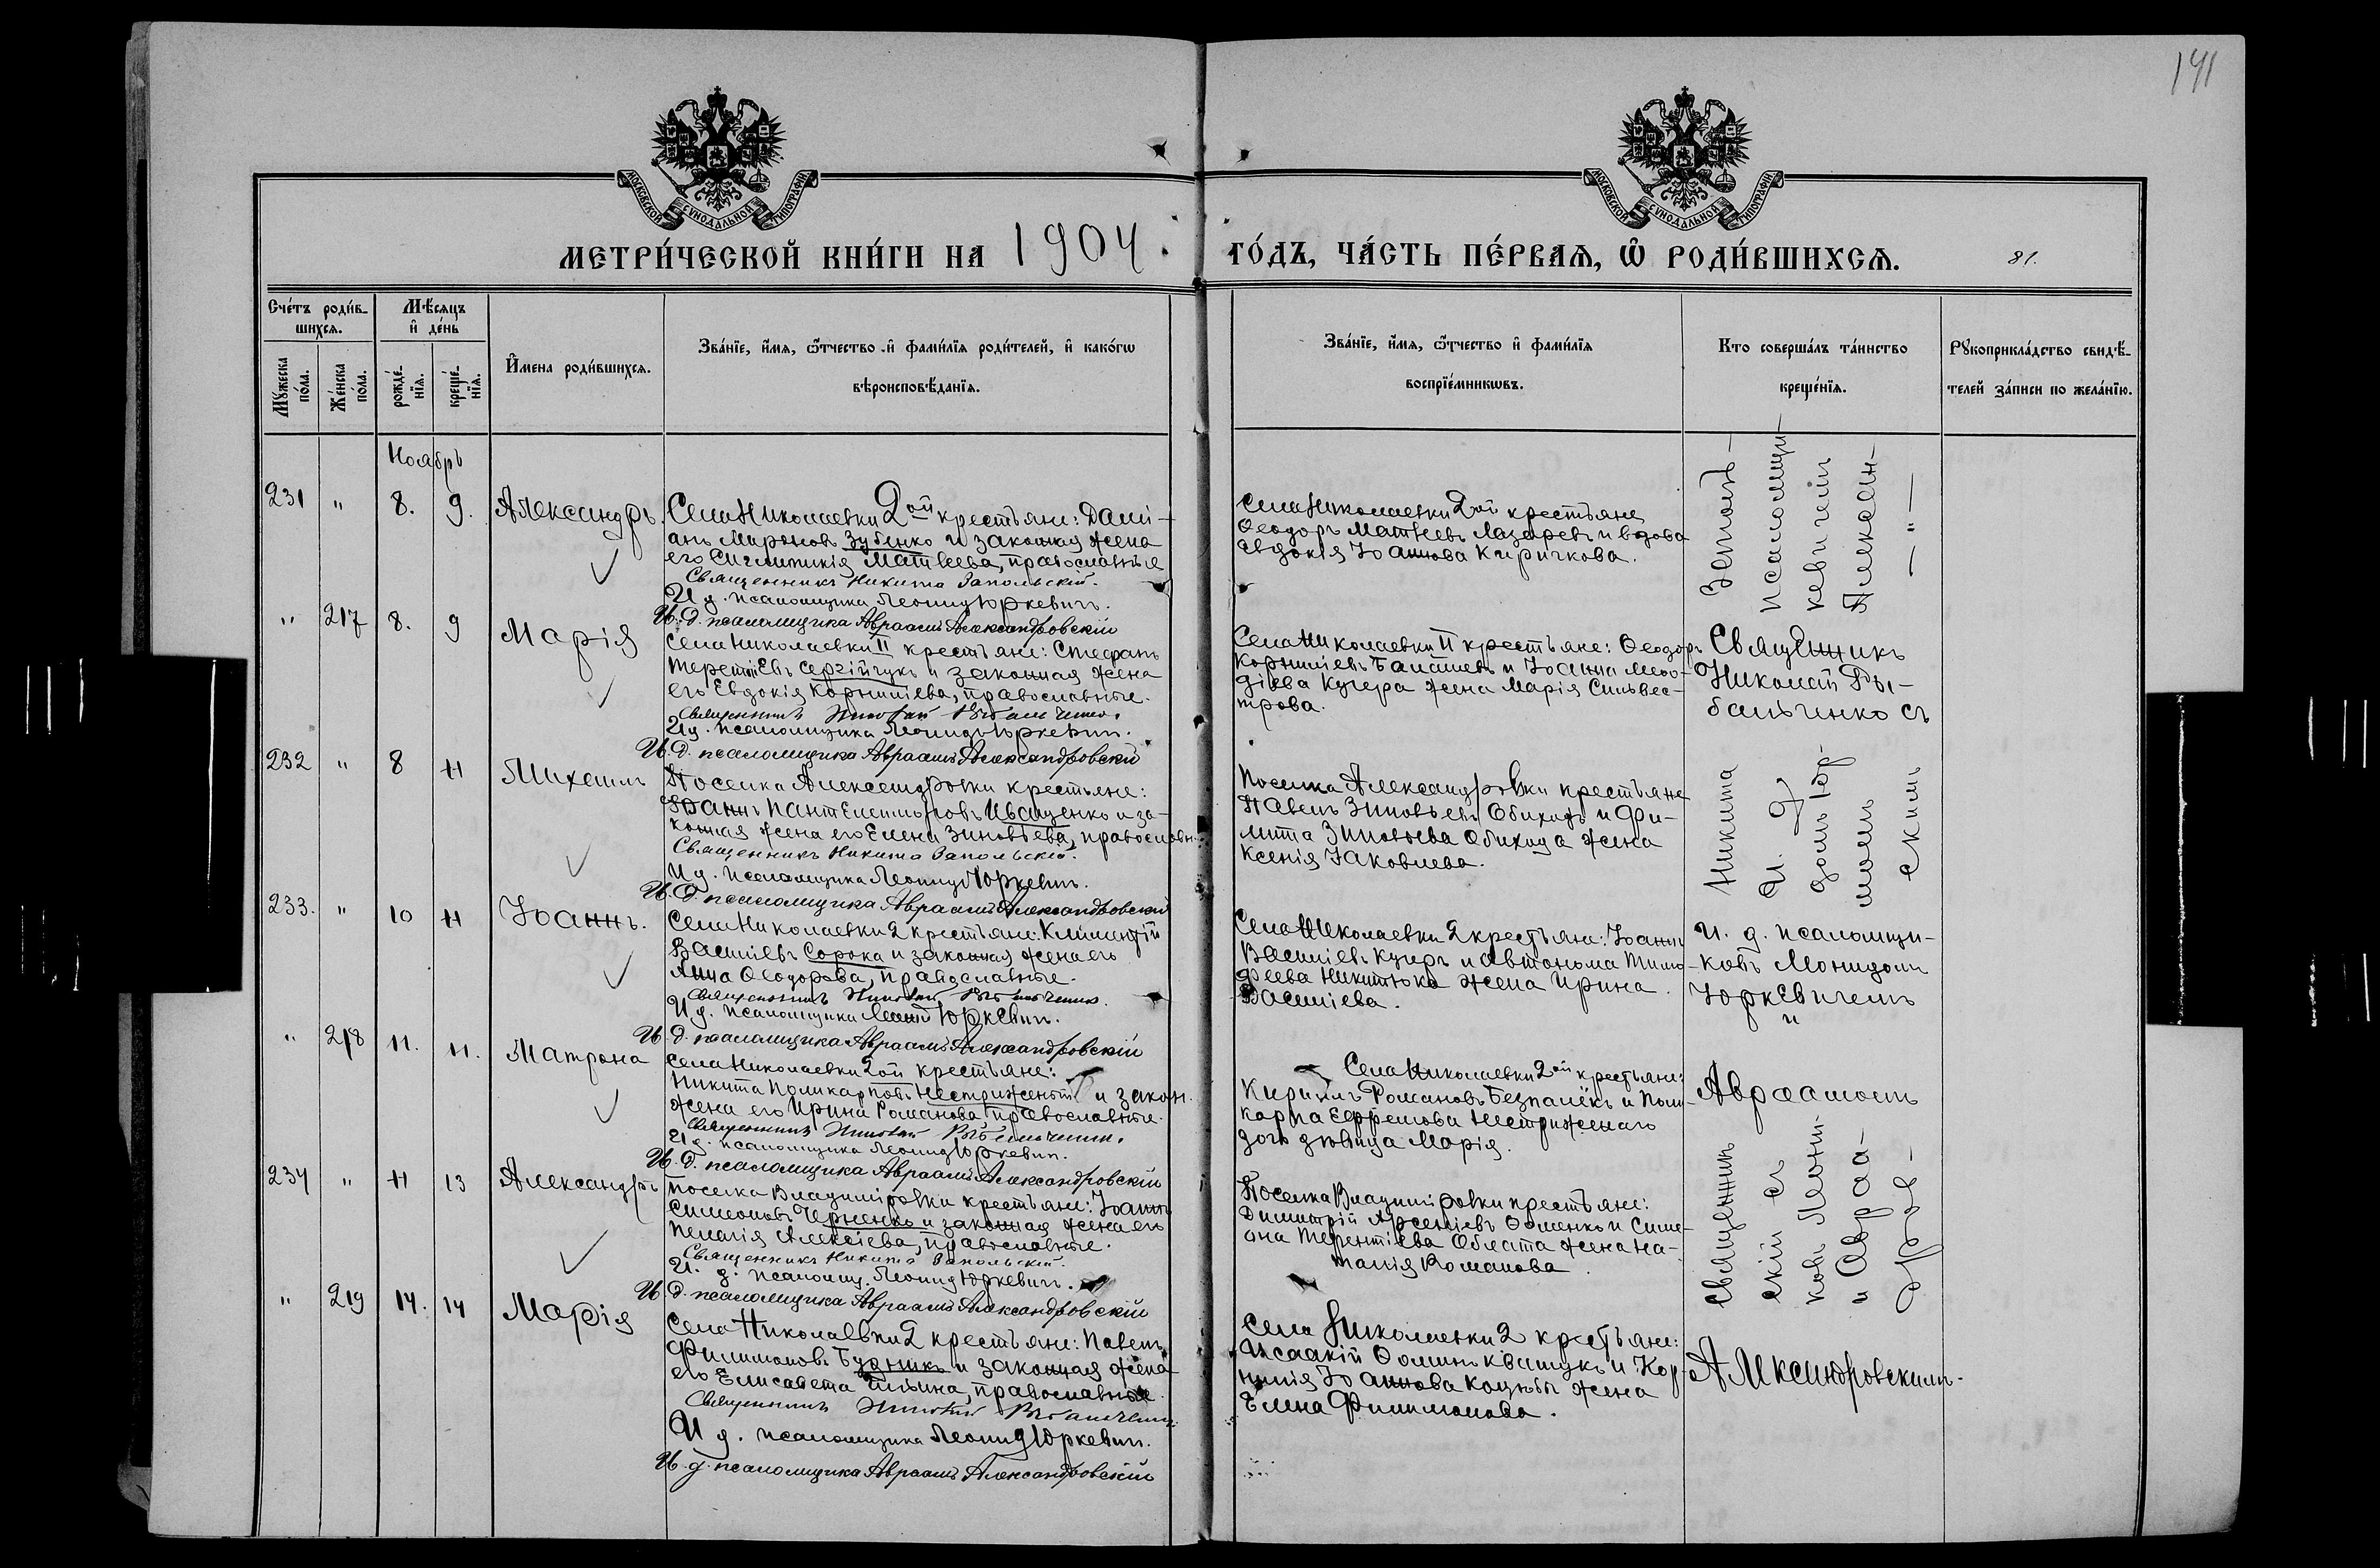 141
МОСКОВСКОЙ СѴНОДАЛЬНОЙ ТИПОГРАФІИ
МОСКОВСКОЙ СѴНОДАЛЬНОЙ ТИПОГРАФІИ
МЕТРИ́ЧЕСКОЙ КНИ́ГИ НА 1904.
ГО́ДЪ, ЧА́СТЬ ПЕ́РВАѦ, Ѿ РОДИ́ВШИХСѦ.
81.
Сче́тъ роди́в-
шихсѧ.
Мꙋ́жеска
по́ла.
Же́нска
по́ла.
Мѣ́сѧцъ
и҆ де́нь
рожде́-
нїѧ.
креще́-
нїѧ.
И҆мена роди́вшихсѧ.
Зва́нїе, и҆́мѧ, ѻ҆́тчество и҆ фами́лїѧ роди́телей, и҆ како́гѡ
вѣроисповѣ́данїѧ.
Зва́нїе, и҆́мѧ, ѻ҆́тчество и҆ фами́лїѧ
воспрїе́мникѡвъ.
Кто соверша́лъ та́инство
креще́нїѧ.
Рꙋкоприкла́дство свидѣ́-
телей за́писи по жела́нїю.
Ноябрь
231 " 8. 9. Александръ.
Села Николаевки 2ой крестьяне: Дамі-
анъ Мироновъ Зубенко и законная жена
его Сигклитикія Матѳеева, православные
Священникъ Никита Запольскій.
И д. псаломщика Леонидъ Юркевичъ.
И. д. псаломщика Авраамъ Александровскій
Села Николаевки 2ой крестьяне
Ѳеодоръ Матѳеевъ Лазаревъ и вдова
Евдокія Іоаннова Киричкова.
" 217 8. 9 Марія
Села Николаевки II крестьяне: Стефанъ
Терентіевъ Сергійчукъ и законная жена
его Евдокія Корниліева, православные.
Священникъ Николай Рыбальченко.
И д. псаломщика Леонидъ Юркевичъ.
И. д. псаломщика Авраамъ Александровскій
Села Николаевки II крестьяне: Ѳеодоръ
Корниліевъ Балашевъ и Іоанна Меѳо-
діева Кучера жена Марія Сильвес-
трова.
Священникъ
Николай Ры-
бальченко съ
232 " 8 11 Михаилъ
Поселка Александровки крестьяне:
Іоаннъ Пантелеимоновъ Иващенко и за-
конная жена его Елена Зиновьева, православн.
Священникъ Никита Запольскій.
И д. псаломщика Леонидъ Юркевичъ.
И. д. псаломщика Авраамъ Александровскій
Поселка Александровки крестьяне
Павелъ Зиновьевъ Обиходъ и Фи-
липпа Зиновьева Обихода жена
Ксенія Іаковлева.
233. " 10 11 Іоаннъ.
Села Николаевки 2 крестьяне: Климентій
Василіевъ Сорока и законная жена его
Анна Ѳеодорова, православные.
Священникъ Николай Рыбальченко.
И д. псаломщика Леонидъ Юркевичъ.
И. д. псаломщика Авраамъ Александровскій
Села Николаевки 2 крестьяне: Іоаннъ
Василіевъ Кучеръ и Автонома Тимо-
феева Никитюка жена Ирина
Василіева.
И. д. псаломщи-
ковъ Леонидомъ
Юркевичемъ
и
" 218 11. 11. Матрона
Села Николаевки 2ой крестьяне:
Никита Поликарповъ Нестриженый и закон.
жена его Ирина Романова православные.
Священникъ Николай Рыбальченко.
И д. псаломщика Леонидъ Юркевич.
И. д. псаломщика Авраамъ Александровскій
Села Николаевки 2ой крестьяне:
Кириллъ Романовъ Безпалекъ и Поли-
карпа Ефремова Нестриженаго
дочь дѣвица Марія.
Авраамомъ
234 " 11 13 Александръ
Поселка Владиміровки крестьяне: Іоаннъ
Симеоновъ Черненко и законная жена его
Пелагія Алексіева, православные.
Священникъ Никита Запольскій.
И. д. псаломщ. Леонидъ Юркевичъ.
И. д. псаломщика Авраамъ Александровскій
Поселка Владиміровки крестьяне:
Димитрій Арсеніевъ Ѳоменко и Симе-
она Терентіева Облата жена На-
талія Романова
" 219 14. 14 Марія
Села Николаевки 2 крестьяне: Павелъ
Филимоновъ Будникъ и законная жена
его Елисавета Ильина, православные.
Священникъ Николай Рыбальченко
И д. псаломщика Леонидъ Юркевич.
И. д. псаломщика Авраамъ Александровскій
Села Николаевки 2 крестьяне:
Исаакій Ѳоминъ Квашукъ и Кор-
нилія Іоаннова Коцюбы жена
Елена Филимонова.
Александровскимъ.
Священникъ
Никита
Заполь-
скій съ
И. д.
псаломщи-
ковъ Леони-
домъ Юр-
кевичемъ
и Авраа-
момъ
Александ-
ров-
скимъ